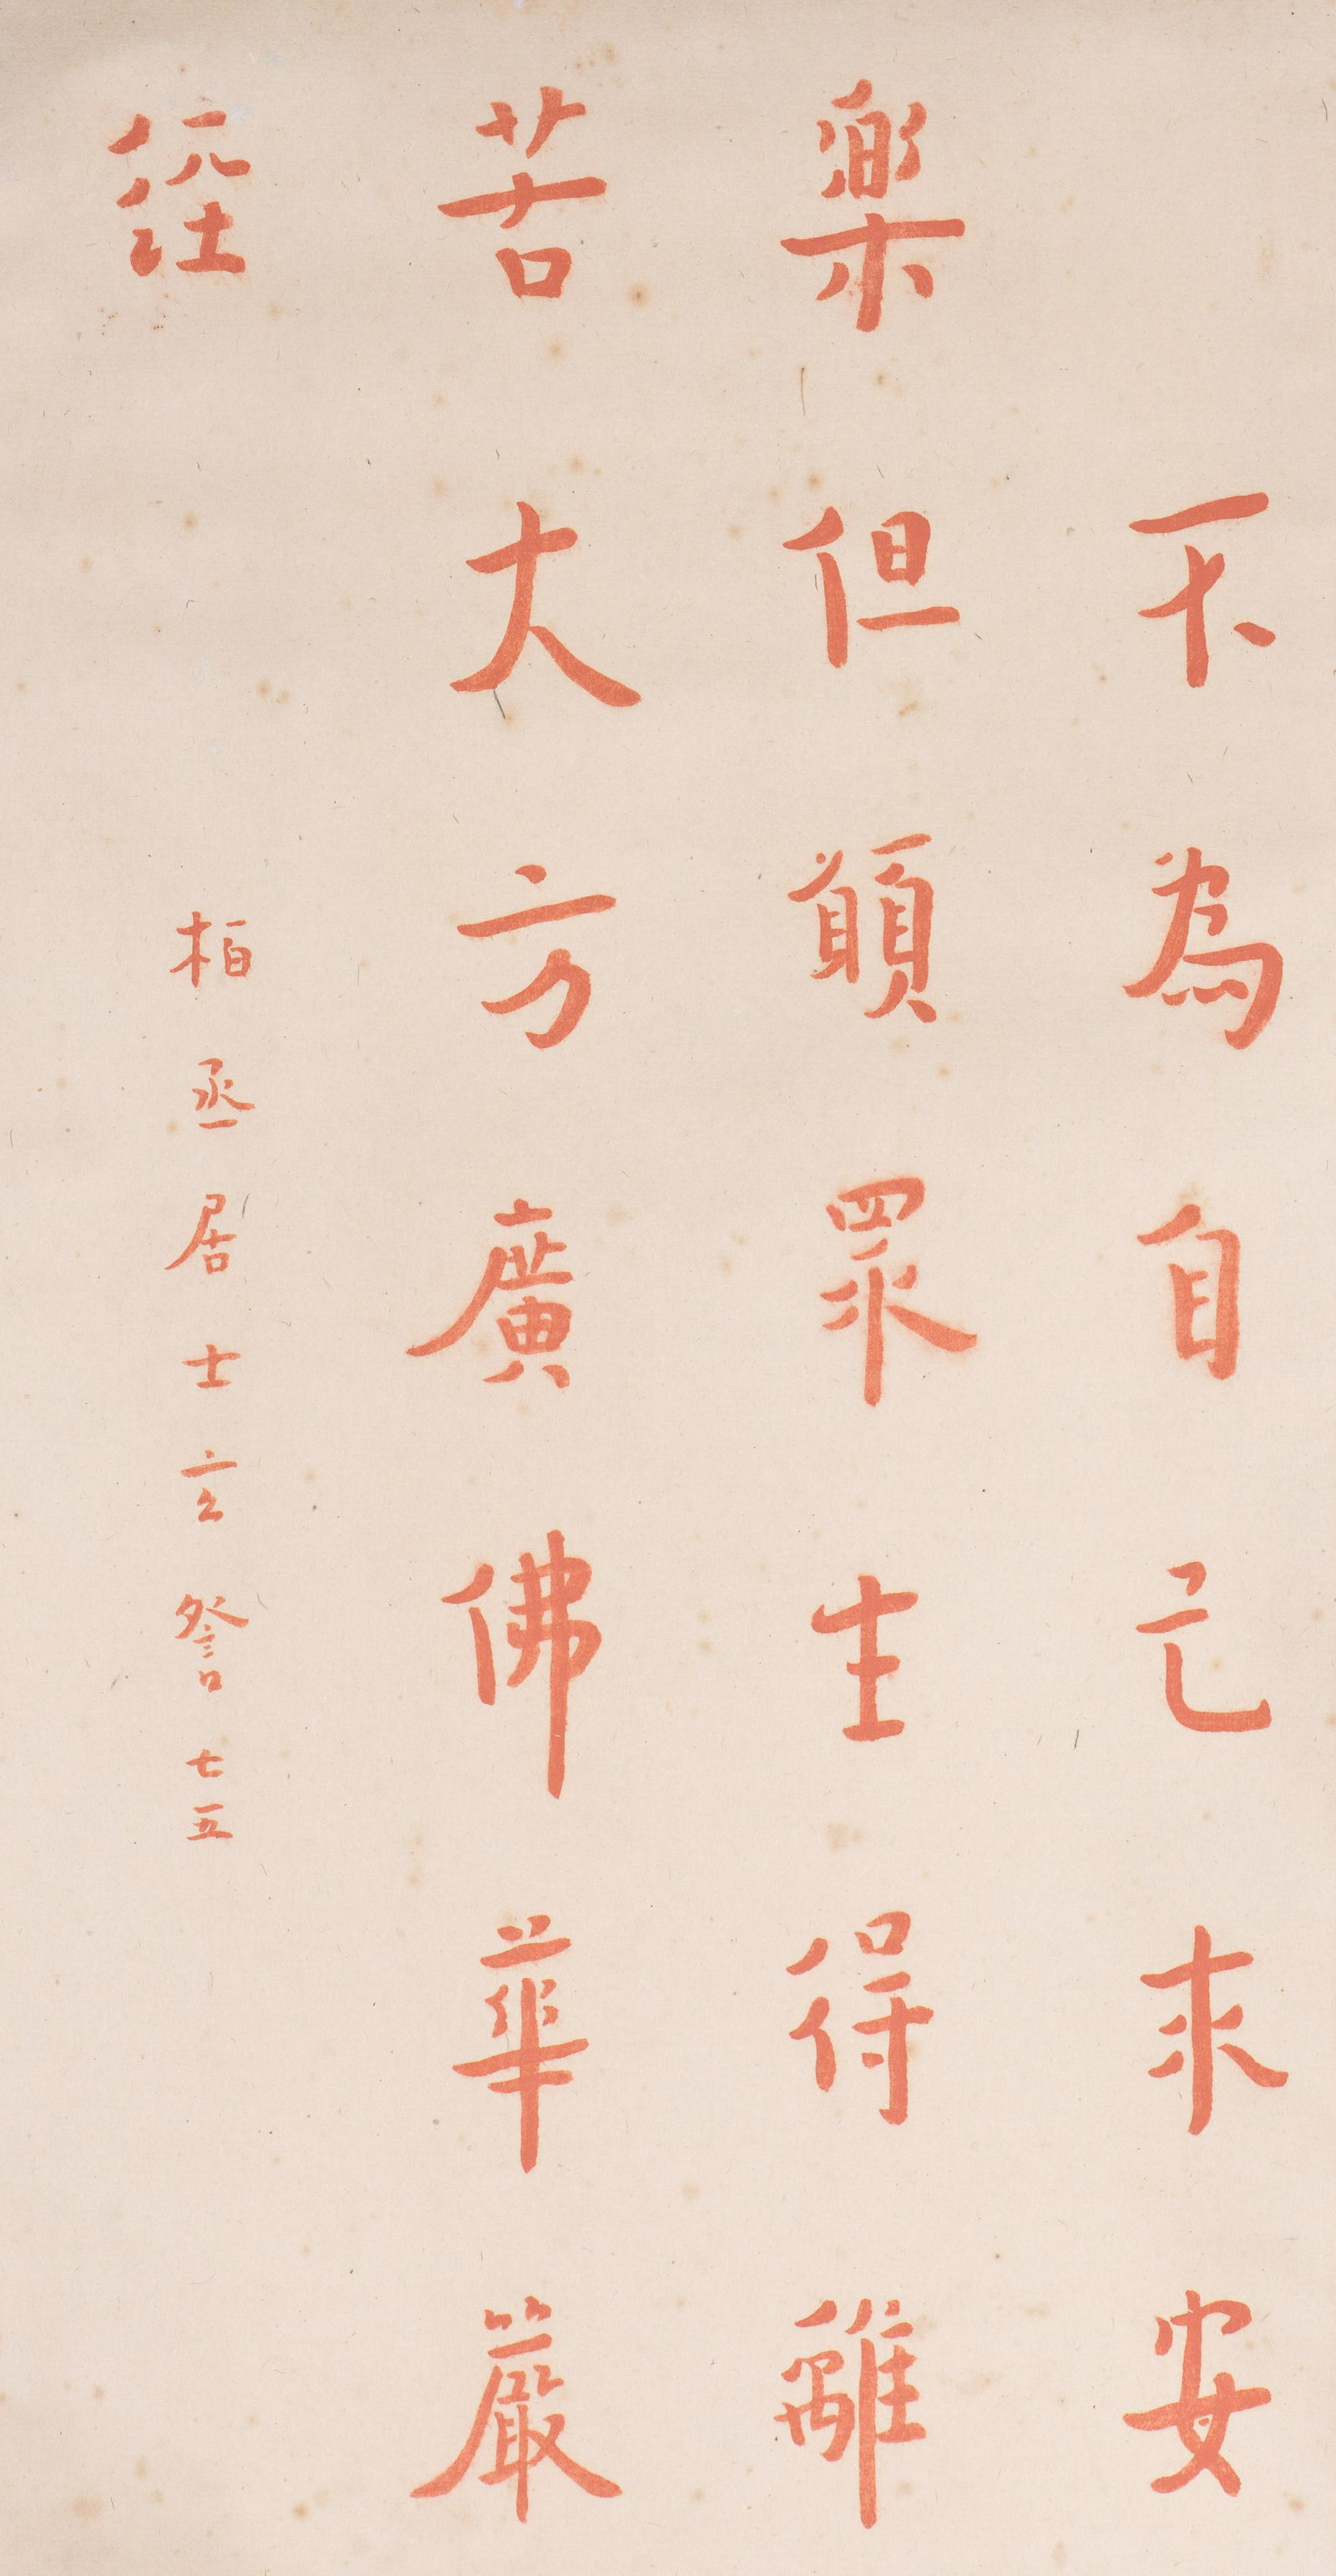 不為自己求安
樂但願眾生得離
苦大方廣佛華嚴
經
柏丞居士玄詧七五